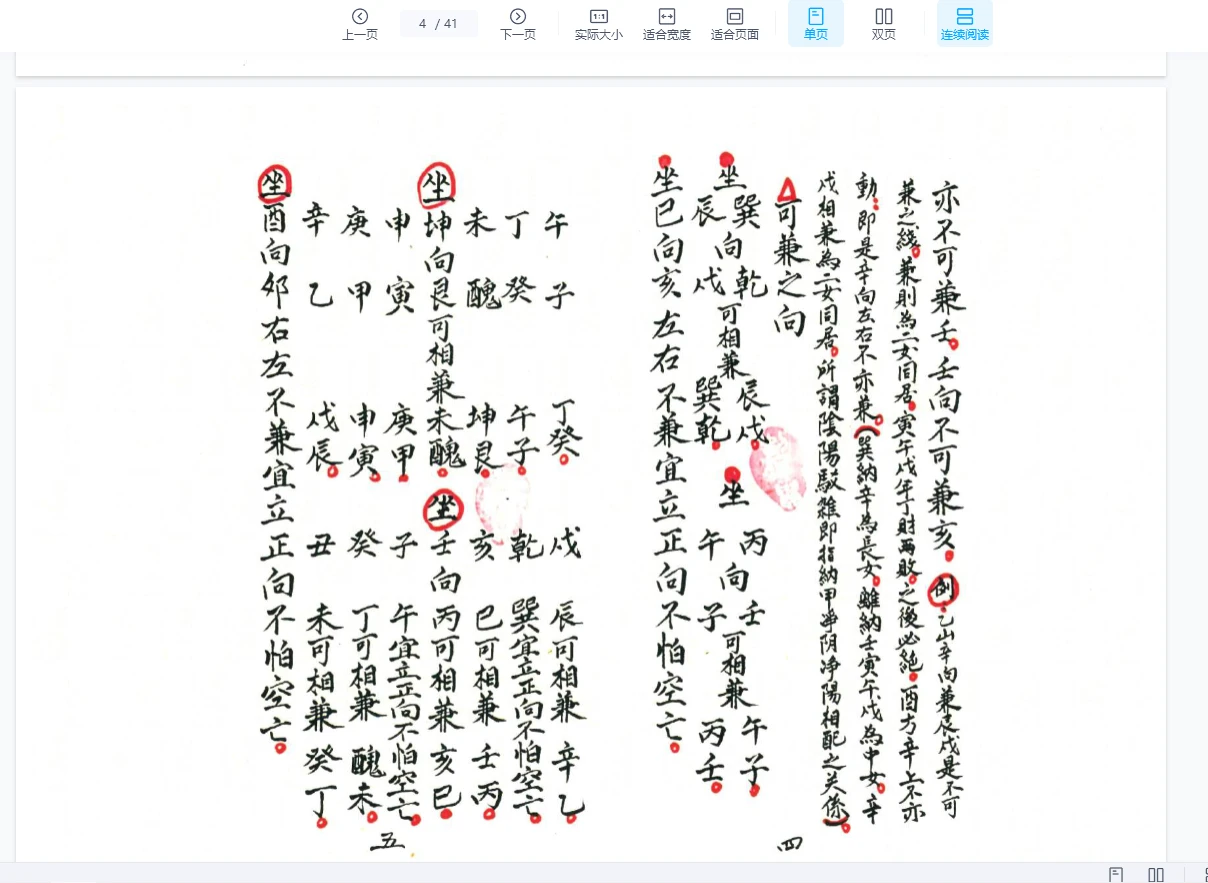 上一页
4 / 41
下一页
实际大小
适合宽度
适合页面
单页
双页
连续阅读
亦不可兼壬。壬向不可兼亥。例:乙山辛向兼辰戌是不可
兼之綫。兼則為二女同居。寅午戌年丁財兩敗。之後必絕。酉方辛上不亦
動:即是辛向左右不亦兼。(巽納辛為長女。離納壬寅午戌為中女。辛
戌相兼為二女同居。所謂陰陽駁雜即指納甲淨阴淨陽相配之关係)。
△可兼之向
巽 乾 辰戌。 丙 壬 午子。
坐 向 可相兼 坐 向 可相兼
辰 戌 巽乾。 午 子 丙壬。
坐巳向亥左右不兼宜立正向不怕空亡。
四
午 子 丁癸。 戌 辰可相兼辛乙。
丁 癸 午子。 乾 巽宜立正向不怕空亡。
未 醜 坤艮。 亥 巳可相兼壬丙。
坐坤向艮可相兼未醜。坐壬向丙可相兼亥巳。
申 寅 庚甲。 子 午宜立正向不怕空亡。
庚 甲 申寅。 癸 丁可相兼醜未。
辛 乙 戌辰。 丑 未可相兼癸丁。
坐酉向邜右左不兼宜立正向不怕空亡。
五